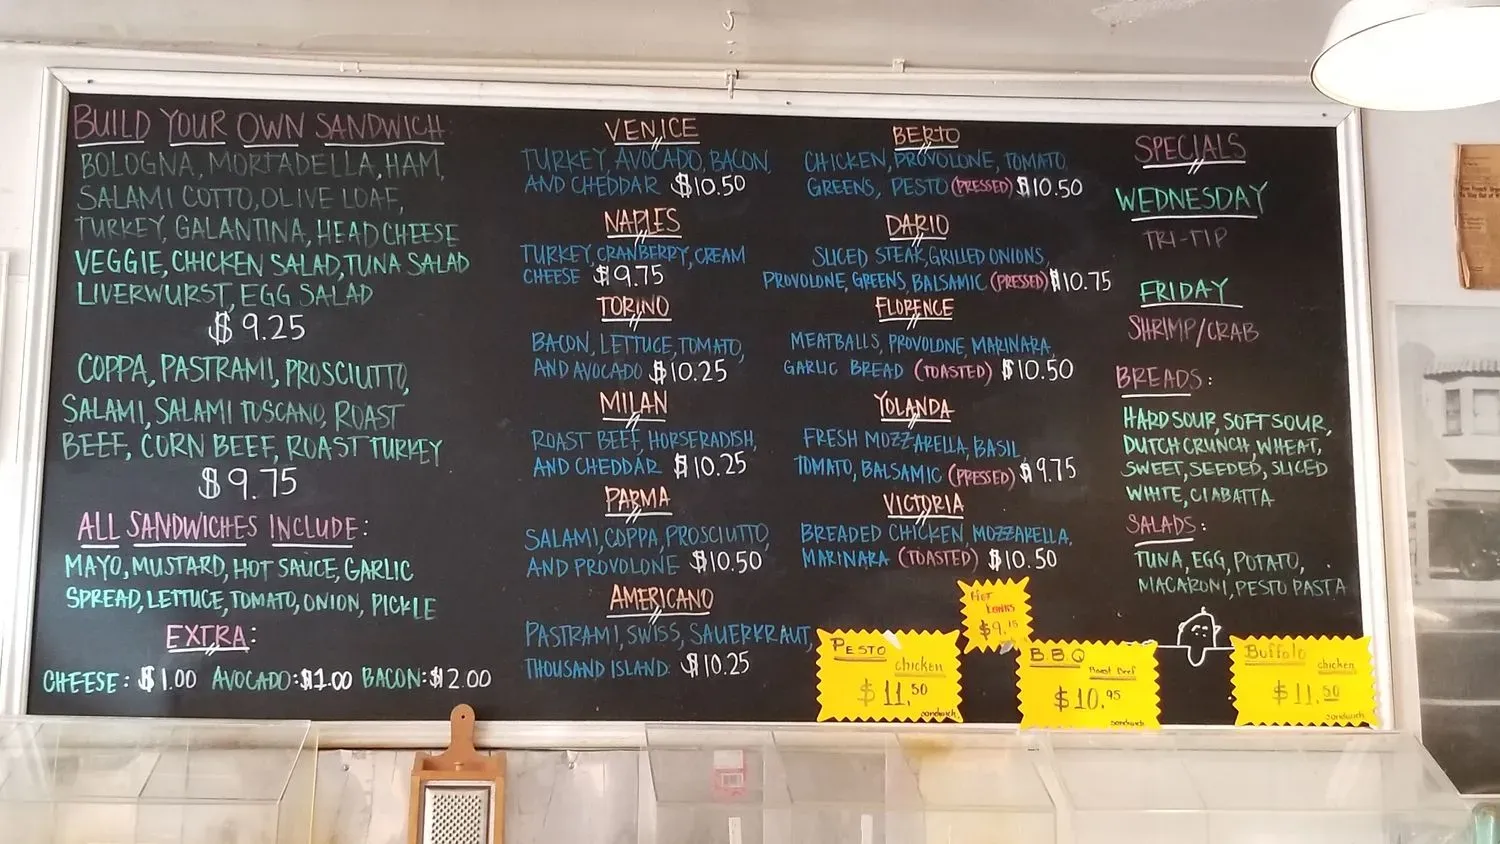 BUILD YOUR OWN SANDWICH:
BOLOGNA, MORTADELLA, HAM,
SALAMI COTTO, OLIVE LOAF,
TURKEY, GALANTINA, HEAD CHEESE
VEGGIE, CHICKEN SALAD, TUNA SALAD
LIVERWURST, EGG SALAD
$9.25
COPPA, PASTRAMI, PROSCIUTTO,
SALAMI, SALAMI TOSCANO, ROAST
BEEF, CORN BEEF, ROAST TURKEY
$9.75
ALL SANDWICHES INCLUDE:
MAYO, MUSTARD, HOT SAUCE, GARLIC
SPREAD, LETTUCE, TOMATO, ONION, PICKLE
EXTRA:
CHEESE: $1.00 AVOCADO: $1.00 BACON: $2.00
VENICE
TURKEY, AVOCADO, BACON,
AND CHEDDAR $10.50
NAPLES
TURKEY, CRANBERRY, CREAM
CHEESE $9.75
TORINO
BACON, LETTUCE, TOMATO,
AND AVOCADO $10.25
MILAN
ROAST BEEF, HORSERADISH,
AND CHEDDAR $10.25
PARMA
SALAMI, COPPA, PROSCIUTTO,
AND PROVOLONE $10.50
AMERICANO
PASTRAMI, SWISS, SAUERKRAUT,
THOUSAND ISLAND $10.25
BERTO
CHICKEN, PROVOLONE, TOMATO,
GREENS, PESTO (PRESSED) $10.50
DARIO
SLICED STEAK, GRILLED ONIONS,
PROVOLONE, GREENS, BALSAMIC (PRESSED) $10.75
FLORENCE
MEATBALLS, PROVOLONE, MARINARA,
GARLIC BREAD (TOASTED) $10.50
YOLANDA
FRESH MOZZARELLA, BASIL,
TOMATO, BALSAMIC (PRESSED) $9.75
VICTORIA
BREADED CHICKEN, MOZZARELLA,
MARINARA (TOASTED) $10.50
SPECIALS
WEDNESDAY
TRI-TIP
FRIDAY
SHRIMP/CRAB
BREADS:
HARD SOUR, SOFT SOUR,
DUTCH CRUNCH, WHEAT,
SWEET, SEEDED, SLICED
WHITE, CIABATTA
SALADS:
TUNA, EGG, POTATO,
MACARONI, PESTO PASTA
HOT
LINKS
PESTO
chicken
$11.50
sandwich
B.B.Q
Roast Beef
$10.95
sandwich
Buffalo
chicken
$11.50
sandwich